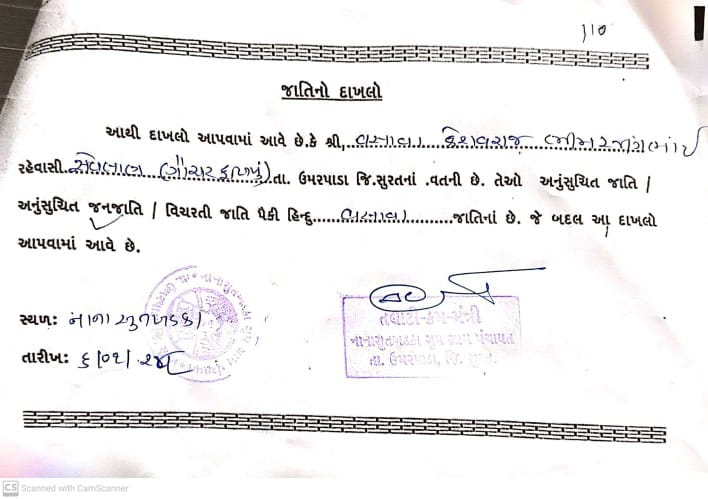 110
જાતિનો દાખલો
આથી દાખલો આપવામાં આવે છે.કે શ્રી,..વસાવા. કેશવરાજ
રહેવાસી. (ગોચર ફળિયું)તા. ઉમરપાડા જિ.સુરતનાં .વતની છે. તેઓ અનુંસુચિત જાતિ /
અનુંસુચિત જનજાતિ / વિચરતી જાતિ પૈકી હિન્દુ......વસાવા..........જાતિનાં છે. જે બદલ આ દાખલો
આપવામાં આવે છે.
સ્થળ: નાના સુતખડકા
તારીખ:
તલાટી-કમ-મંત્રી
નાનાસુતખડકા ગ્રુપ ગ્રામ પંચાયત
તા. ઉમરપાડા, જિ. સુરત.
CS Scanned with CamScanner